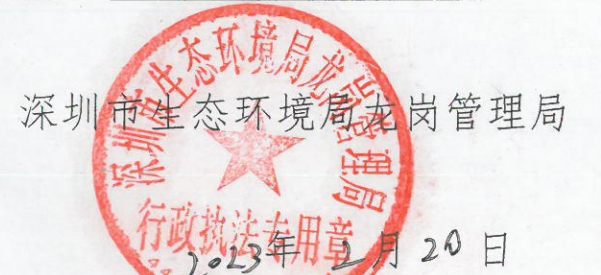 深圳市生态环境局龙岗管理局
深圳市生态环境局龙岗管理局
行政执法专用章
2023年2月20日